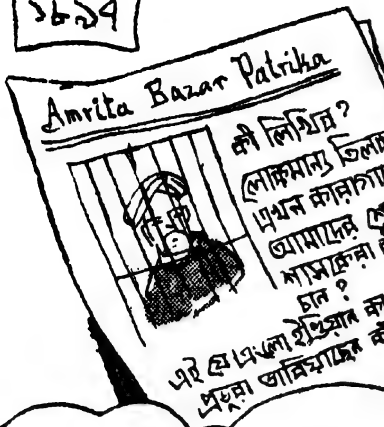 ১৮৯৭
Amrita Bazar Patrika
কী লিখিব?
লোকমান্য তিলক
এখন কারাগা
আমাদের
শাসকেরা
চান?
এই যে এংলো ইণ্ডিয়ান
প্রভুরা ভাবিয়াছেন